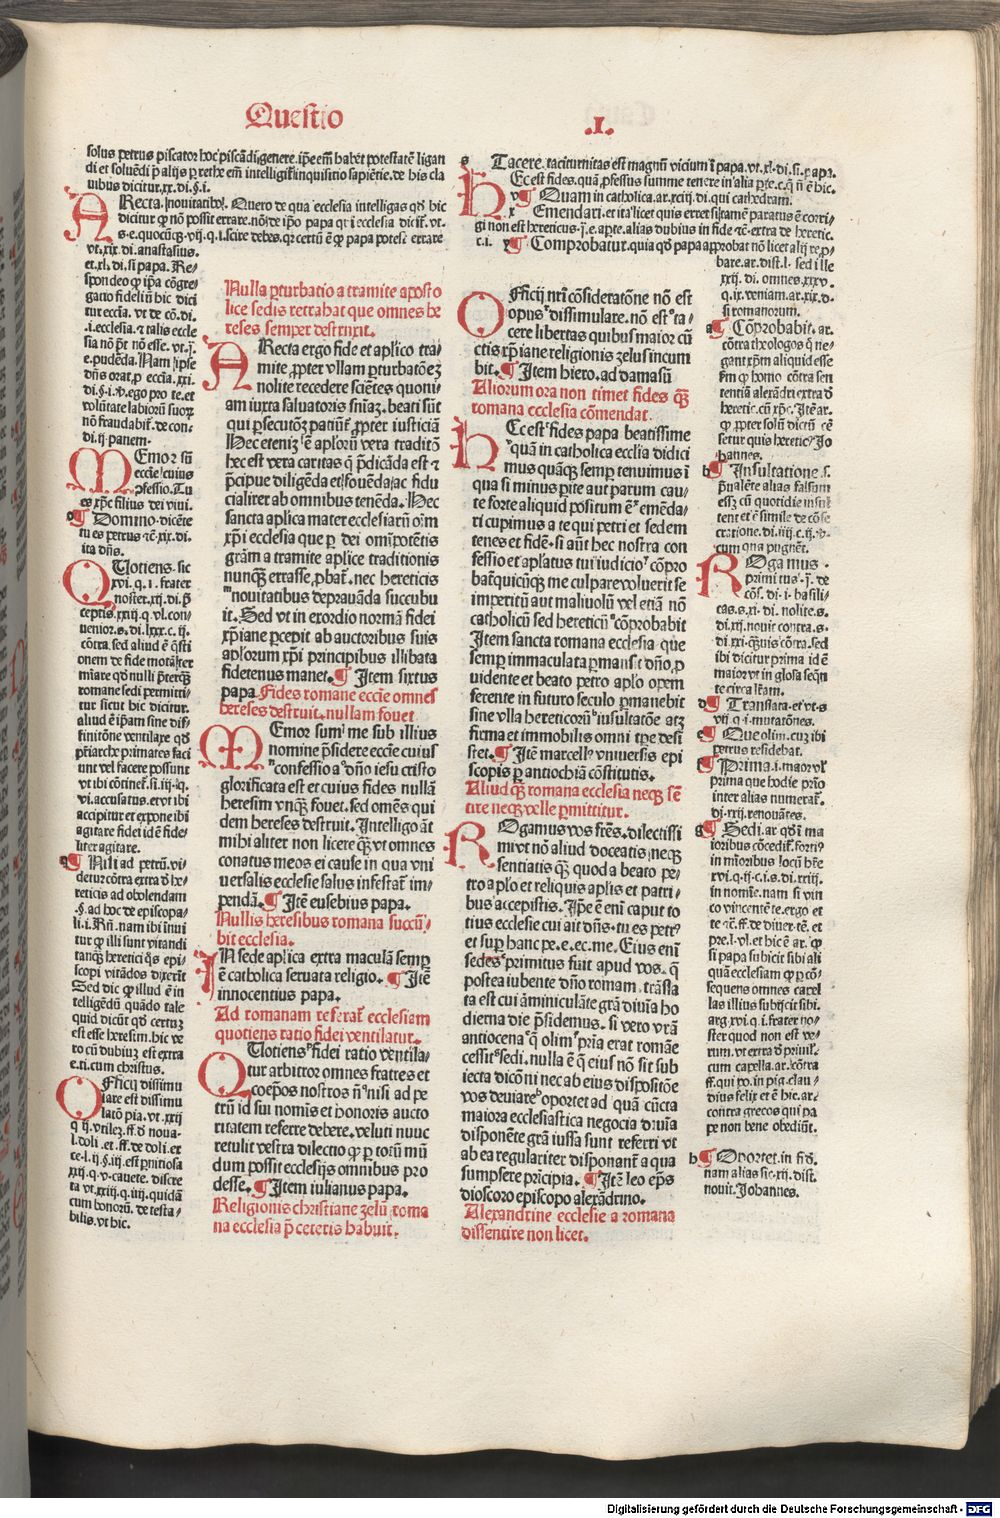 Questio
.I.
solus petrus piscator hoc piscãdi genere. ip̃e em̃ habet potestatẽ ligan
di et soluẽdi p̃ alijs
inquisitio sapiẽtie. de his cla
uibus dicitur. xx. di. §. i.
A Recta. Quero de qua ecclesia intelligas qd̃ hic
dicitur ꝙ nõ possit errare.
ipo papa qui ecclesia
scire debes. certũ ẽ ꝙ papa potest errare
vt. xix. di. anastasius.
et. xl. di. si papa. Re/
spondeo ꝙ ip̃a cõgre/
gatio fideliũ hic dici
tur ecclĩa. vt de cõ. di.
.i. ecclesia. et talis eccle
sia nõ põt nõ esse.
e. pudẽda. Nam ip̃se
dñs orat, p̱ ecclĩa. xxi.
di. §. i. ego pro te. et
volũtate labiorũ suoꝝ
nõ fraudabit̃. de con/
di. ij. panem.
M Emor sũ
cuius
cõfessio. Tu
es xp̃c filius dei viui.
¶ Domino. dicẽte
tu es petrus ⁊c. xix. di.
ita dñs.
Q Uotiens. sic
xvi. q. i. frater
noster. xij. di. p̃
ceptis. xxiij. q. vl. con/
uenior. s. di. lxxx. c. ij.
cõtra. sed aliud ẽ q̃sti
onem de fide motã
ꝙ nulli p̃terꝙ̃
romane sedi permitti/
tur sicut hic dicitur.
aliud ẽ ip̃am sine dif/
finitõne ventilare. qd̃
p̃riarche primates faci
unt vel facere possunt
vt ibi cõtinet̃. s. iij. q.
vi. accusatus. et vt ibi
accipitur et expone ibi
agitare fidei id ẽ fide/
liter agitare.
¶ Nisi ad petrũ. vi/
detur cõtra extra d̃ he/
reticis ad abolendam
.§. ad hoc de episcopa/
li. i. Rñ. nam ibi inui
tur ꝙ illi sunt vitandi
tanꝙ̃ heretici q̃s epi/
scopi vitãdos dixerĩt
Sed dic ꝙ illud ẽ in
telligẽdũ quãdo tale
quid dicũt qd̃ certuꝫ
est esse heresim. hic ve
ro cũ dubiuꝫ est extra
e. ti. cum christus.
O Fficij dissimu
lare est dissimu
latõ pia. vt. xxij
q. ij. vtileꝫ. ff. d̃ noua.
l. doli. et. ff. de doli. ex
ce. l. ij. §. iij. est p̃nitiosa
xxij. q. v. cauete. discre
ta vt. xxiij. q. iiij. quidã
cum bonorũ. de testa/
bilis. vt hic.
Nulla p̱turbatio a tramite aposto
lice sedis retrahat que omnes he
reses semper destruxit.
A Recta ergo fide et ap̃lico tra/
mite, p̱pter vllam p̱turbatõeꝫ
nolite recedere sciẽtes quoni/
am iuxta saluatoris snĩaꝫ. beati sũt
qui p̱secutõꝫ patiũt̃ p̱pter iusticiã
Nec etenĩ ẽ ap̃lorũ vera traditõ
hec est vera caritas q̃ p̃dicãda est ⁊
p̃cipue diligẽda et fouẽda ac fidu
cialiter ab omnibus tenẽda. Hec
sancta ap̃lica mater ecclesiarũ oĩm
xp̃i ecclesia que p̱ dei om̃ipotẽtis
grãm a tramite ap̃lice traditionis
nunꝙ̃ errasse, p̱bat̃. nec hereticis
nouitatibus deprauãda succubu
it. Sed vt in exordio normã fidei
xp̃iane p̱cepit ab auctoribus suis
ap̃lorum xp̃i principibus illibata
fidetenus manet. ¶ Item sixtus
papa. Fides romane ecctĩe omnes
hereses destruit. nullam fouet
M Emor sum me sub illius
nomine p̃sidere ecctĩe cuius
confessio a dño iesu cristo
glorificata est et cuius fides nullã
heresim vnꝙ̃ fouet. sed omẽs qui
dem hereses destruit. Intelligo ãt
mihi aliter non licere ꝙ̃ vt omnes
conatus meos ei cause in qua vni
uersalis ecclesie salus infestat̃ im/
pendã. ¶ Itẽ eusebius papa.
Nullis heresibus romana succũ/
bit ecclesia.
I N sede ap̃lica extra maculã semp̱
ẽ catholica seruata religio. ¶ Itẽ
innocentius papa.
Ad romanam referat̃ ecclesiam
quotiens ratio fidei ventilatur.
Q Uotiens fidei ratio ventila/
tur arbitror omnes fratres et
coep̃os nostros nĩ nisi ad pe
trũ id sui nomĩs et honoris aucto
ritatem referre debere. veluti nuuc
retulit vestra dilectio ꝙ p̱ totũ mũ
dum possit ecclesijs omnibus pro
desse. ¶ Item iulianus papa.
Religionis christiane zelũ roma
na ecclesia p̃ ceteris habuit.
Tacere. taciturnitas est magnũ vicium ĩ papa. vt. xl. di. si. papa.
H Ec est fides. quã, p̱fessus summe tenere in alia p̱te. c. q̃ nĩ ẽ hic.
¶ Quam in catholica. ar. xciij. di. qui cathedram.
Emendari. et ita licet quis erret si tamẽ paratus ẽ corri/
gi non est hereticus. alias dubius in fide ⁊c̃. extra de heretic.
c. i. ¶ Comprobatur. quia qd̃ papa approbat nõ licet alij rep̱/
bare. ar. dist. l. sed ille
xxij. di. omnes. xxxv.
q. ix. veniam. ar. xix. d.
si romanorum.
O Fficij nrĩ cõsideratõne nõ est
opus dissimulare. nõ est ta/
cere libertas quibus maior cũ
ctis xp̃iane religionis zelus incum
bit. ¶ Item hiero. ad damasũ
Aliorum ora non timet fides ꝙ̃
romana ecclesia cõmendat.
H Ec est fides papa beatissime
quã in catholica ecclĩa didici
mus quãꝙ̃ semp̱ tenuimus ĩ
qua si minus p̱ite aut parum cau/
te forte aliquid positum ẽ emẽda/
ri cupimus a te qui petri et sedem
tenes et fidẽ. si aũt hec nostra con
fessio et ap̃latus tui iudicio cõpro
bat̃ quicũꝙ̃ me culpare voluerit se
imperitũ aut maliuolũ vel etiã nõ
catholicũ sed hereticũ cõprobabit
Item sancta romana ecclesia que
semp̱ immaculata p̱mansit dño, p̱
uidente et beato petro ap̃lo opem
ferente in futuro seculo p̱manebit
sine vlla hereticorũ insultatõe atꝫ
firma et immobilis omni tp̃e desi
stet. ¶ Itẽ marcell vniuersis epi
scopis p̱ antiochiã cõstitutis.
Aliud ꝙ̃ romana ecclesia neꝙ sẽ
tire neꝙ velle p̱mittitur.
R Ogamus vos frẽs. dilectissi
mi vt nõ aliud doceatis neꝙ
sentiatis ꝙ̃ quod a beato pe/
tro ap̃lo et reliquis ap̃lis et patri/
bus accepistis. Ip̃e ẽ enĩ caput to
tius ecclesie cui ait dñs. tu es petr
et sup̱ hanc pe. e. ec. me. Eius enĩ
sedes primitus fuit apud vos. q̃
postea iubente dño romam trãsla
ta est cui ãminiculãte grã diuia ho
dierna die p̃sidemus. si vero vrã
antiocena q̃ olim pria erat romãe
cessit sedi. nulla ẽ q̃ eius nõ sit sub
iecta dicõni nec ab eius dispositõe
vos deuiare oportet ad quã cũcta
maiora ecclesiastica negocia diuia
disponẽte grã iussa sunt referri vt
ab ea regulariter disponant̃ a qua
sumpsere pricipia. ¶ Itẽ leo ep̃s
dioscoro episcopo alexãdrino.
Alexandrine ecclesie a romana
dissentire non licet.
¶ Cõprobabit. ar.
cõtra theologos q̃ ne/
gant xp̃m aliquid esse
fm ꝙ homo cõtra sen
tentiã alexãdri extra d̃
heretic. cũ xp̃c. Itẽ ar.
ꝙ p̱pter solũ dictũ cẽ
setur quis heretic Jo
hannes.
¶ Insultatione s.
p̃ualẽte alias falsum
esset cũ quotidie insul
tent et ẽ simile de cõse
cratione. di. iiij. c. ij.
cum qua pugnet.
R Ogamus.
primitus. de
cõs. di. i. basili/
cas. s. xi. di. nolite. s.
di. xij. nouit contra. s.
di. xxi. ꝙ̃uis cõtra. sed
ibi dicitur prima id ẽ
maior vt in glosa seqñ
te circa
¶ Translata. et vt. s
vij. q. i. mutatõnes.
¶ Que olim. cuꝫ ibi
petrus residebat.
¶ Prima. i. maior vl
prima que hodie
inter alias numerat̃.
di. xxij. renouãtes.
¶ Sedi. ar qd̃ ĩ ma
ioribus cõcedit̃. forti
in mĩoribus locũ hẽt
xvi. q. ij. c. i. s. di. xxiij.
in nomĩe. nam si vin
co vincentẽ te. ergo et
te ⁊c̃. ff. de diuer. tẽ. et
pre. l. vl. et hic ẽ ar. ꝙ
si papa subicit sibi ali
quã ecclesiam ꝙ p̱ cõ/
sequens omnes capel
las illius subijcit sibi.
arg. xvi. q. i. frater no/
ster quod non est ve/
rum. vt extra d̃ priuil.
cum capella. ar. cõtra
ff. qui po. in pig. clau/
dius felix et ẽ hic. ar.
contra grecos qui pa
pe non bene obediũt.
¶ Oportet. in fid.
nam alias sic. xij. dist.
nouit. Johannes.
Digitalisierung gefördert durch die Deutsche Forschungsgemeinschaft - DFG